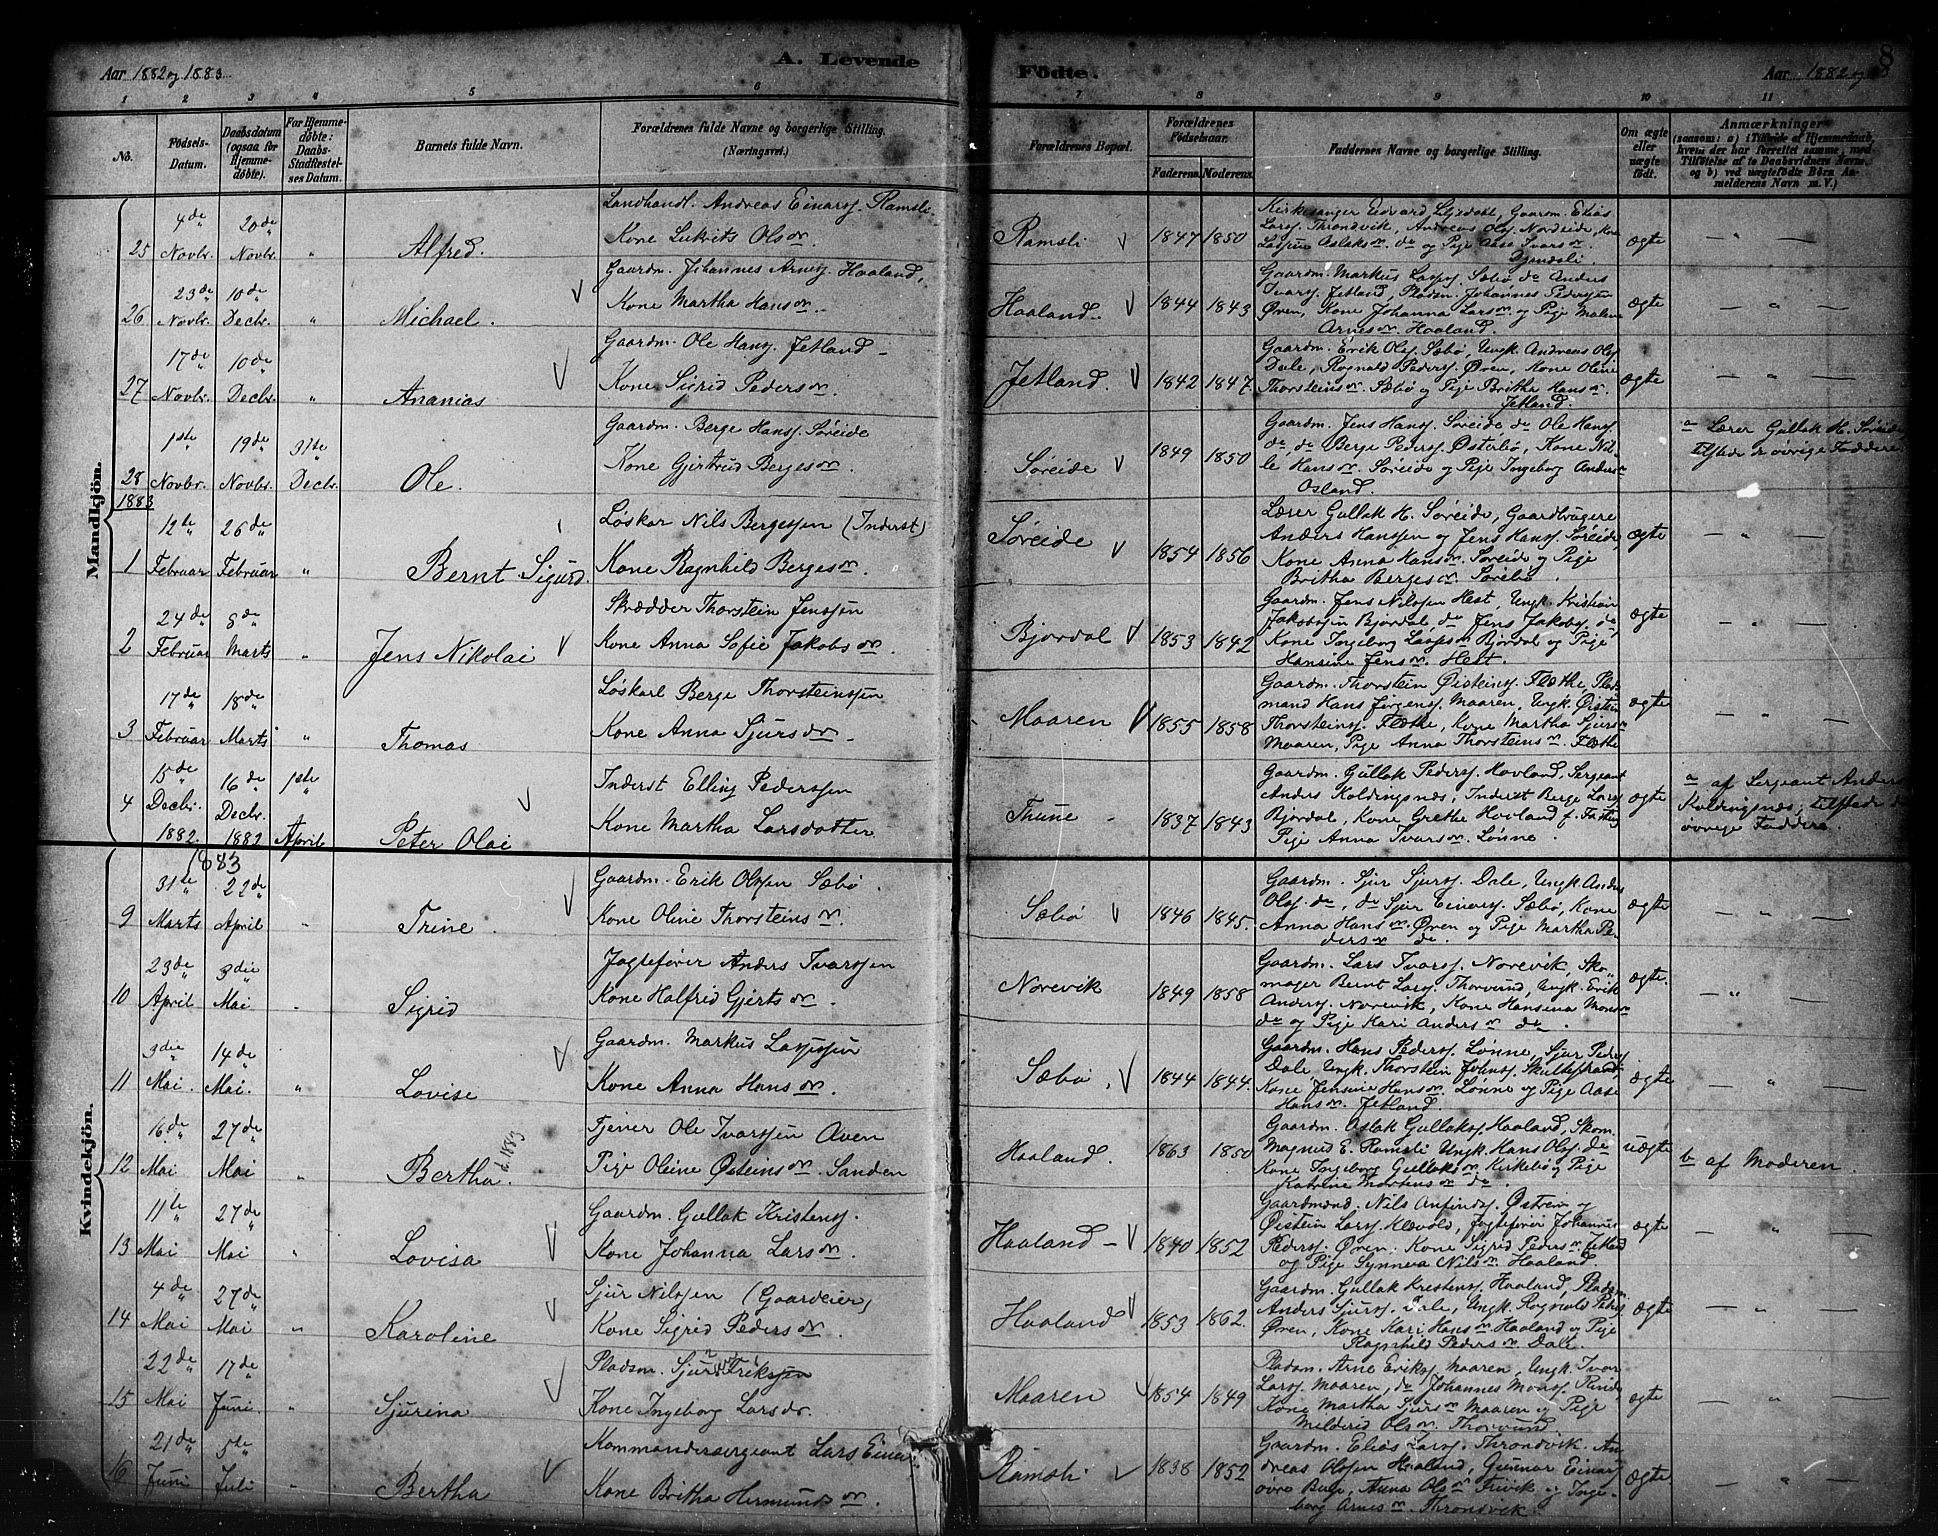 8
Aar 1882 og 1883
A. Levende
Födte.
Aar 1882 og
1 2 3 4 5 6 7 8 9 10 11
No.
Födsels-
Datum.
Daabsdatum
(ogsaa for
Hjemme-
döbte).
For Hjemme-
döbte:
Daabs-
Stadfæstel-
ses Datum.
Barnets fulde Navn.
Forældrenes fulde Navne og borgerlige Stilling.
(Næringsvei.)
Forældrenes Bopæl.
Forældrenes
Födselsaar.
Faderens. Moderens.
Faddernes Navne og borgerlige Stilling.
Om ægte
eller
uægte
födt.
Anmærkninger
(saasom: a) i Tilfælde af Hjemmedaab,
hvem der har forrettet samme, med
Tilföielse af to Daabsvidners Navne,
og b) ved uægtefödte Börn An-
melderens Navn m. V.)
Mandkjön.
25 4de Novbr. 20de Novbr. " Alfred.
Landhandl. Andreas Einarss. Ramsli.
Kone Lukrits Olsdr.
Ramsli 1847 1850
Kirkesanger Edvard Lijedahl, Gaardm. Elias
Larss. Throndvik, Andreas Ols. Nordeide, Kone
Aslaksdr. do og Pige Aase Ivarsdr.
ægte
26 23de Novbr. 10de Decbr. " Michael.
Gaardm. Johannes Arness. Haaland,
Kone Martha Hansdr.
Haaland 1844 1843
Gaardm. Markus Lass. Sæbö do Anders
Ivars. Jetland, Pladsm. Johannes Pederssen
Øren, Kone Johanna Larsdr og Pige Malene
Arnesdr. Haaland.
ægte
27 17de Novbr. 10de Decbr. " Ananias
Gaardm. Ole Hanss. Jetland
Kone Sigrid Pedersdr.
Jetland. 1842 1847.
Gaardm. Erik Ols. Sæbö, Ungk. Andreas Ols.
Dale, Rognald Peders. Øren, Kone Oline
Thorsteinsdr. Sæbö og Pige Britha Hansdr.
Jetland.
ægte
28 1ste Novbr. 19de Novbr. 31te Decbr. Ole.
Gaardm. Berge Hanss. Söreide
Kone Gjertrud Bergesdr.
Söreide 1849 1850
Gaardm. Jens Hanss. Söreide do Ole Hanss.
do, do Berge Peders. Østerbö, Kone Nil-
le Hansdr. Söreide og Pige Ingeborg Andersdr
Osland.
ægte
a Lærer Gullak H. Söreide
tilstede de övrige Faddere
1883
1 12te Februar 26de Februar " Bernt Sigurd.
Löskar Nils Bergessen (Inderst)
Kone Ragnhild Bergesdr.
Söreide 1854 1856
Lærer Gullak H. Söreide, Gaardbrugere
Anders Hanssen og Jens Hanss. Söreide,
Kone Anna Hansdr. Söreide og Pige
Britha Bergesdr. Sörebö.
ægte
2 24de Februar 8de Marts " Jens Nikolai
Skrædder Thorstein Jenssen
Kone Anna Sofie Jakobsdr.
Bjordal 1853 1842
Gaardm. Jens Nilssen Hest, Ungk. Kristian
Jakobssen Bjordal, do Jens Jakobs. do,
Kone Ingeborg Larsdr Bjordal og Pige
Hansine Jensdr. Hest.
ægte
3 17de Februar 18de Marts " Thomas
Löskarl Berge Thorsteinssen
Kone Anna Sjursdr
Maaren 1855 1858
Gaardm. Thorstein Øisteins. Fløthe Plads-
mand Hans Jörgens. Maaren, Ungk. Øistein
Thorsteins. Fløthe, Kone Martha Sjursdr
Maaren, Pige Anna Thorsteinsdr. Fløthe
ægte
4 15de Decbr. 1882. 16de Decbr. 1883 1ste April Peter Olai
Inderst Elling Pederssen
Kone Martha Larsdatter
Thune 1837 1843
Gaardm. Gullak Peders. Hovland, Sergeant
Anders Koldingsnes, Inderst Berge Larss.
Bjordal, Kone Grethe Hovland f.
Pige Anna Ivarsdr. Lönne.
ægte
a af Sergeant Anders
Koldingsnes; tilstede de
övrige Faddere.
Kvindekjön.
1883
9 31te Marts 22de April " Trine
Gaardm. Erik Olssen Sæbö.
Kone Oline Thorsteinsdr.
Sæbö 1846 1845.
Gaardm. Sjur Sjurs. Dale, Ungk. Anders
Ols. do, do Sjur Einars. Sæbö, Kone
Anna Hansdr. Øren og Pige Martha Pe-
dersdr do.
ægte
10 23de April 3die Mai " Sigrid
Jagtefører Anders Ivarssen
Kone Halfrid Gjertsdr.
Norevik 1849 1858
Gaardm. Lars Ivars. Norevik, Sko-
mager Bernt Larss. Thorvund, Ungk. Erik
Anders. Norevik, Kone Hansina Monsdr
do og Pige Kari Andersdr do.
ægte.
11 3die Mai. 14de Mai. " Lovise
Gaardm. Markus Lassessen
Kone Anna Hansdr.
Sæbö. 1844 1844.
Gaardm. Hans Peders. Lönne, Sjur Peders
Dale Ungk. Thorstein Johns. Skuldestrand.
Kone Jensine Hansdr. Lönne og Pige Aase
Hansdr. Jetland.
ægte
12 16de Mai 27de Mai " Bertha. d. 1883
Tjener Ole Ivarssen Aven
Pige Oline Østeinsdr. Sanden
Haaland. 1863 1850
Gaardm. Aslak Gullaks. Haaland, Skom.
Magnus E. Ramsli Ungk. Hans Ols. do
Kone Ingeborg Gullaksdr. Kirkebö og Pige
Katrine Mortensdr do.
uægte
b af Moderen.
13 11te Mai 27de Mai " Lovisa
Gaardm. Gullak Kristens.
Kone Johanna Larsdr.
Haaland 1840 1852
Gaardmænd. Nils Anfinds. Østrem og
Øistein Lars. Klævold, Jagtefører Johannes
Peders. Øren, Kone Sigrid Pedersdr. Jetland
og Pige Synneva Nilsdr. Haaland.
ægte
14 4de Mai 27de Mai " Karoline
Sjur Nilssen (Gaardeier)
Kone Sigrid Pedersdr.
Haaland 1853 1862.
Gaardm. Gullak Kristens. Haaland, Pladsm.
Anders Sjurs. Dale, Ungk. Rognald Peders
Øren, Kone Kari Hansdr. Haaland og Pige
Ragnhild Pedersdr. Dale.
ægte
15 22de Mai 17de Juni. " Sjurina
Pladsm. Sjur Erikssen
Kone Ingeborg Larsdr.
Maaren 1854 1849
Pladsm. Arne Eriks. Maaren, Ungk. Ivar
Larss. Maaren, do Johannes Mons. Rinde
Kone Martha Sjursdr Maaren og Pige
Melderid Olsdr. Thorvund
ægte
16 21de Juni 5te Juli " Bertha
Kommandersergeant Lars Einars
Kone Britha Hermundsdr.
Ramsli 1838 1852
Gaardm. Elias Larss. Throndvik. An-
dreas Olssen Haaland, Gunnar Einars.
Anna Olsdr og Inge-
borg Arnesdr. Throndvik
ægte